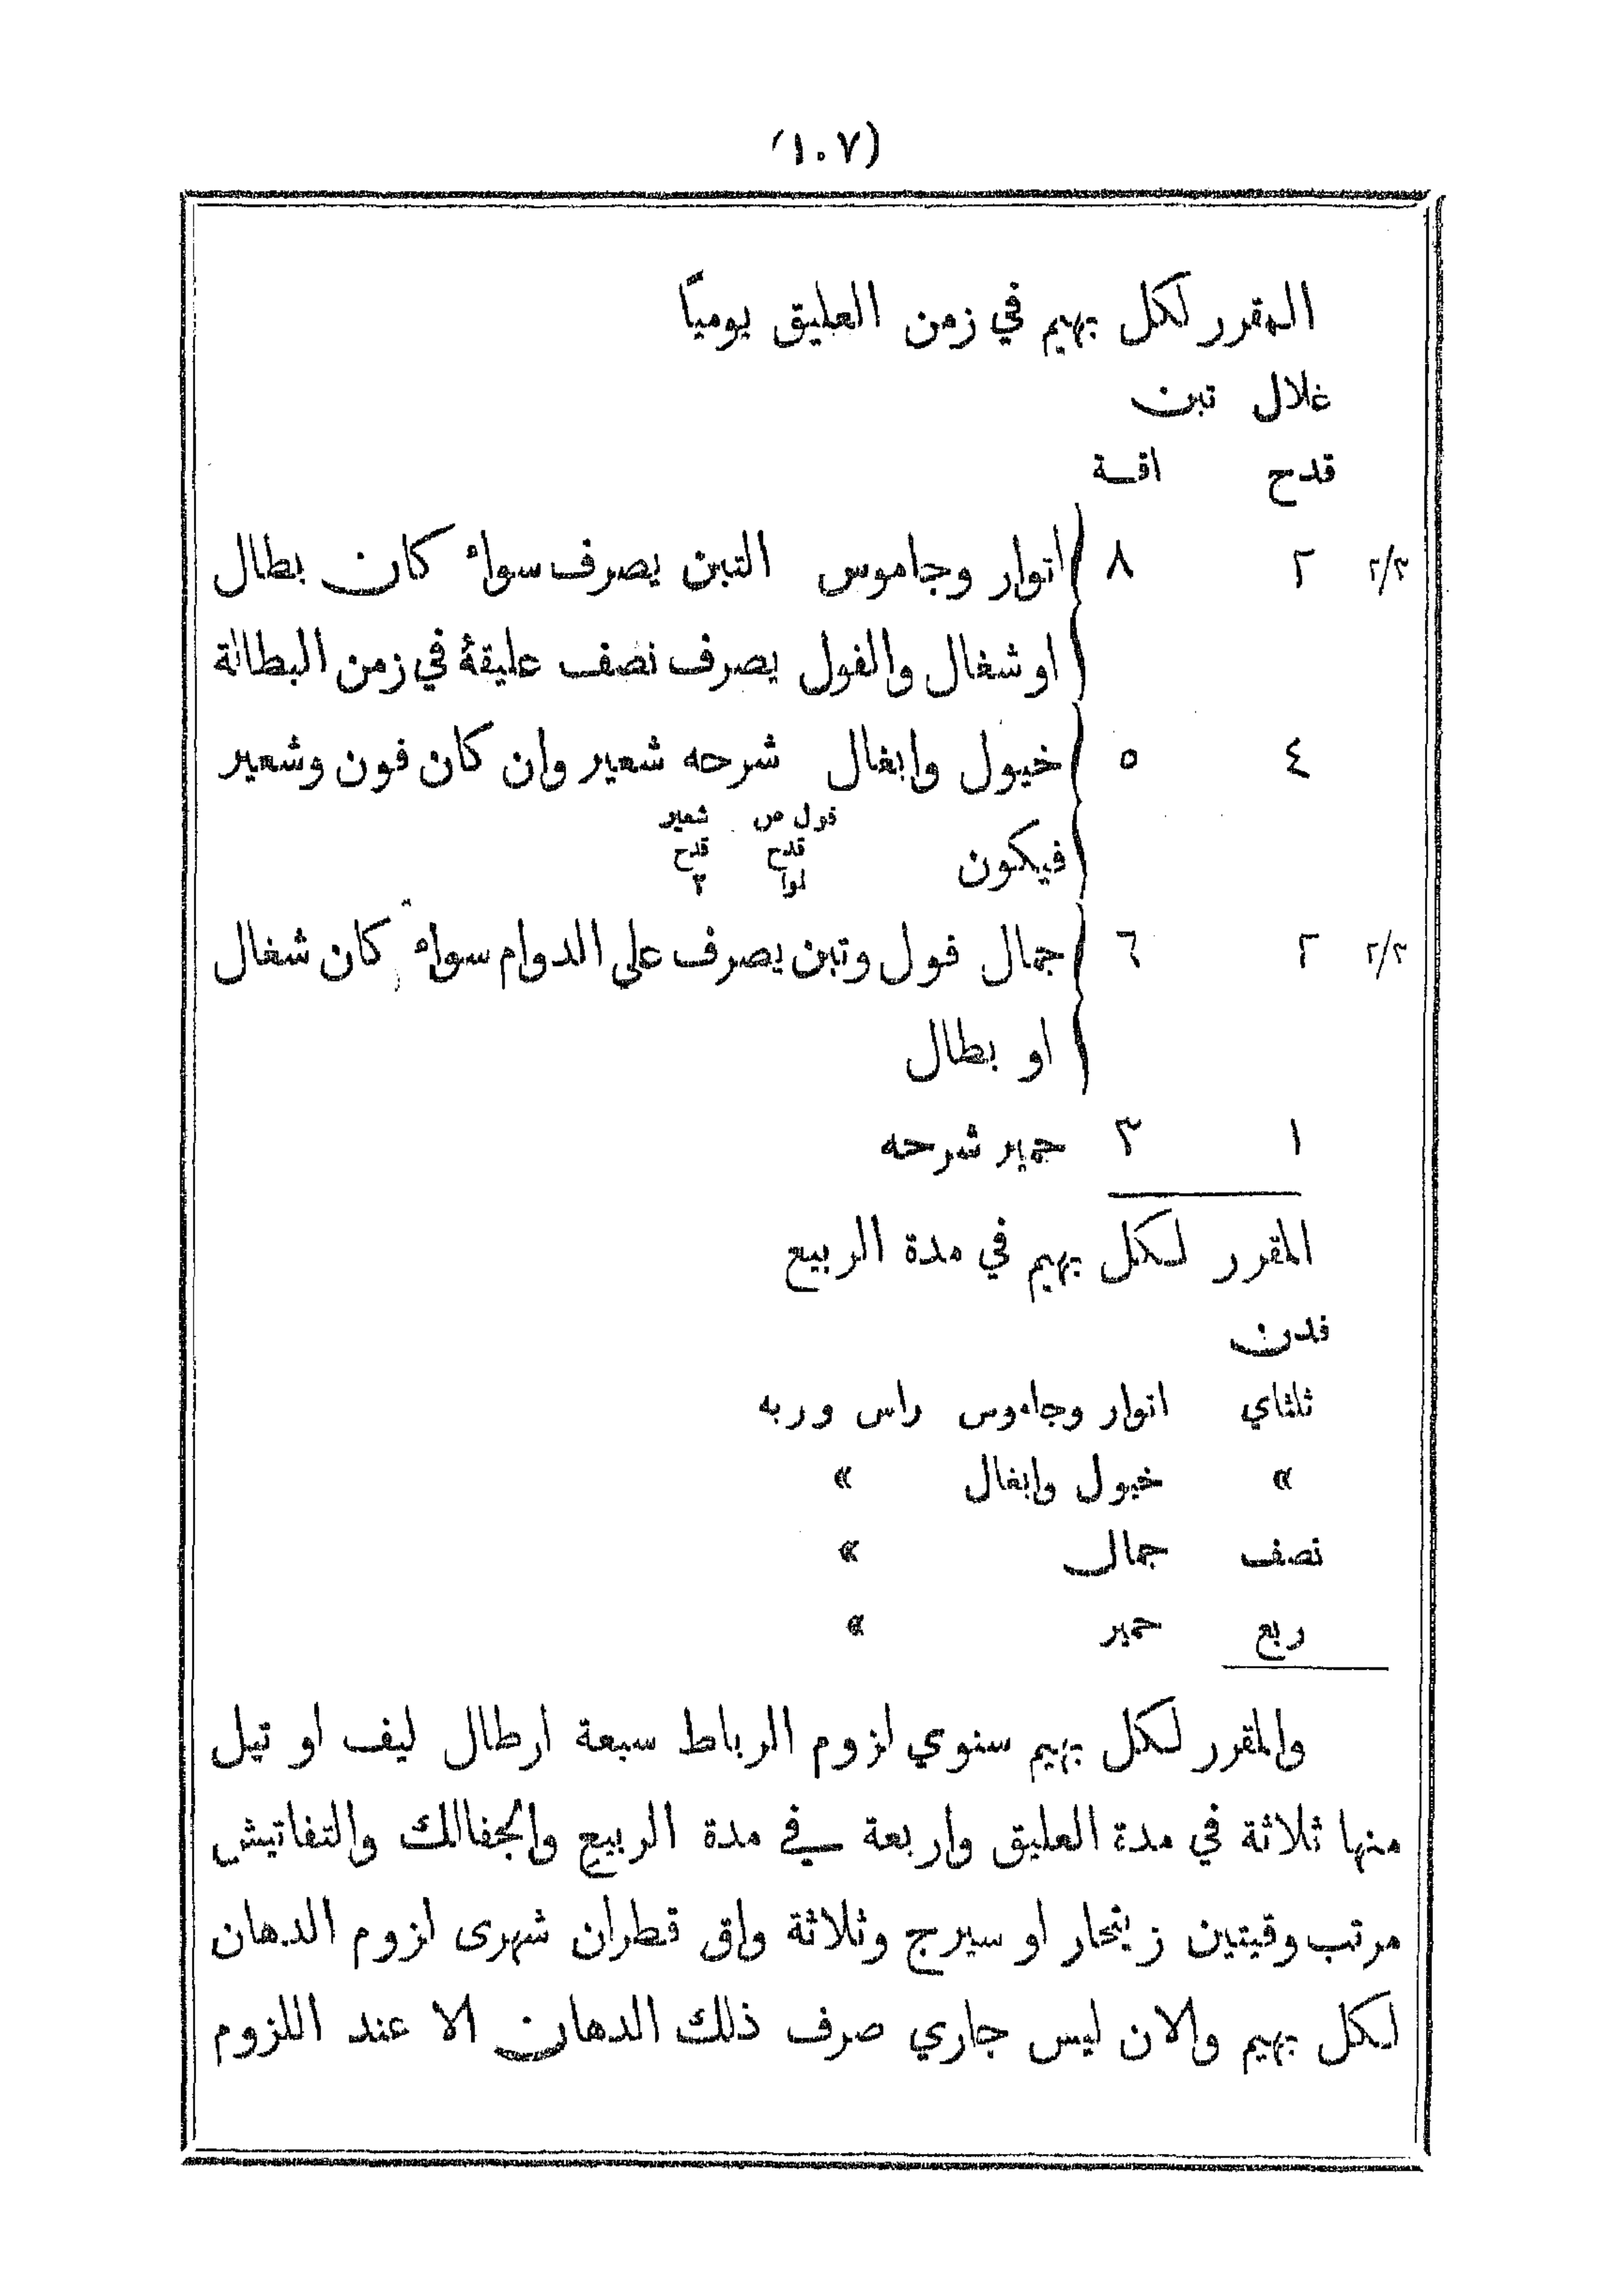 (١٠٧)
المقرر لكل بهيم في زمن العليق يومياً
غلال تبن
قدح اقة
٢/٣ ٢ ٨ اتوار وجاموس التبن يصرف سواء كان بطال
او شغال والفول يصرف نصف عليقة في زمن البطالة
٤ ٥ خيول وابغال شرحه شعير وان كان فون وشعير
فول ص شعير
قدح قدح
فيكون ٣
٢/٣ ٢ ٦ جمال فول وتبن يصرف على الدوام سواء كان شغال
او بطال
١ ٣ حمير شرحه
المقرر لكل بهيم في مدة الربيع
فدن
ثلثاي اتوار وجاموس راس وربه
» خيول وابغال »
نصف جمال »
ربع حمير »
والمقرر لكل بهيم سنوي لزوم الرباط سبعة ارطال ليف او تيل
منها ثلاثة في مدة العليق واربعة في مدة الربيع والجفالك والتفاتيش
مرتب وقيتين زينحار او سيرج وثلاثة واق قطران شهرى لزوم الدهان
لكل بهيم والان ليس جاري صرف ذلك الدهان الا عند اللزوم